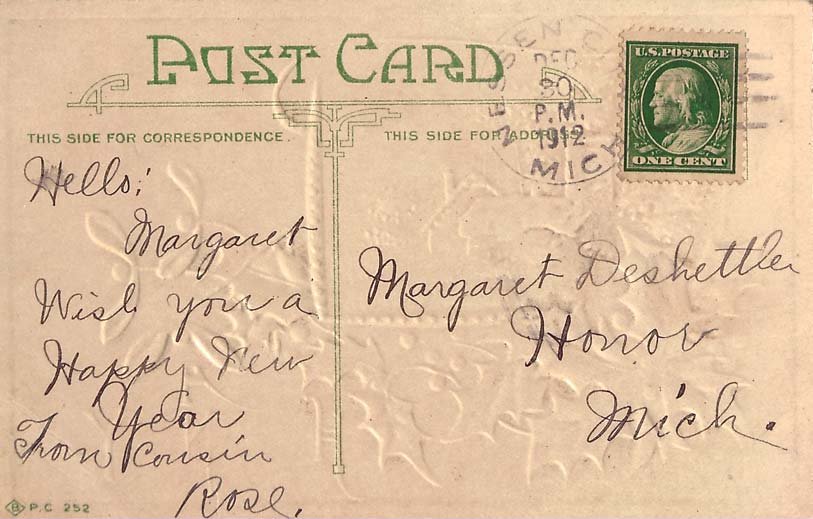 POST CARD
THIS SIDE FOR CORRESPONDENCE.
THIS SIDE FOR ADDRESS.
DEC
30
P.M.
1912
MICH
U.S. POSTAGE
ONE CENT
Hello;
Margaret
Wish you a
Happy New
Year
From Cousin
Rose.
Margaret Deshettler
Honor
Mich.
B P.C 252